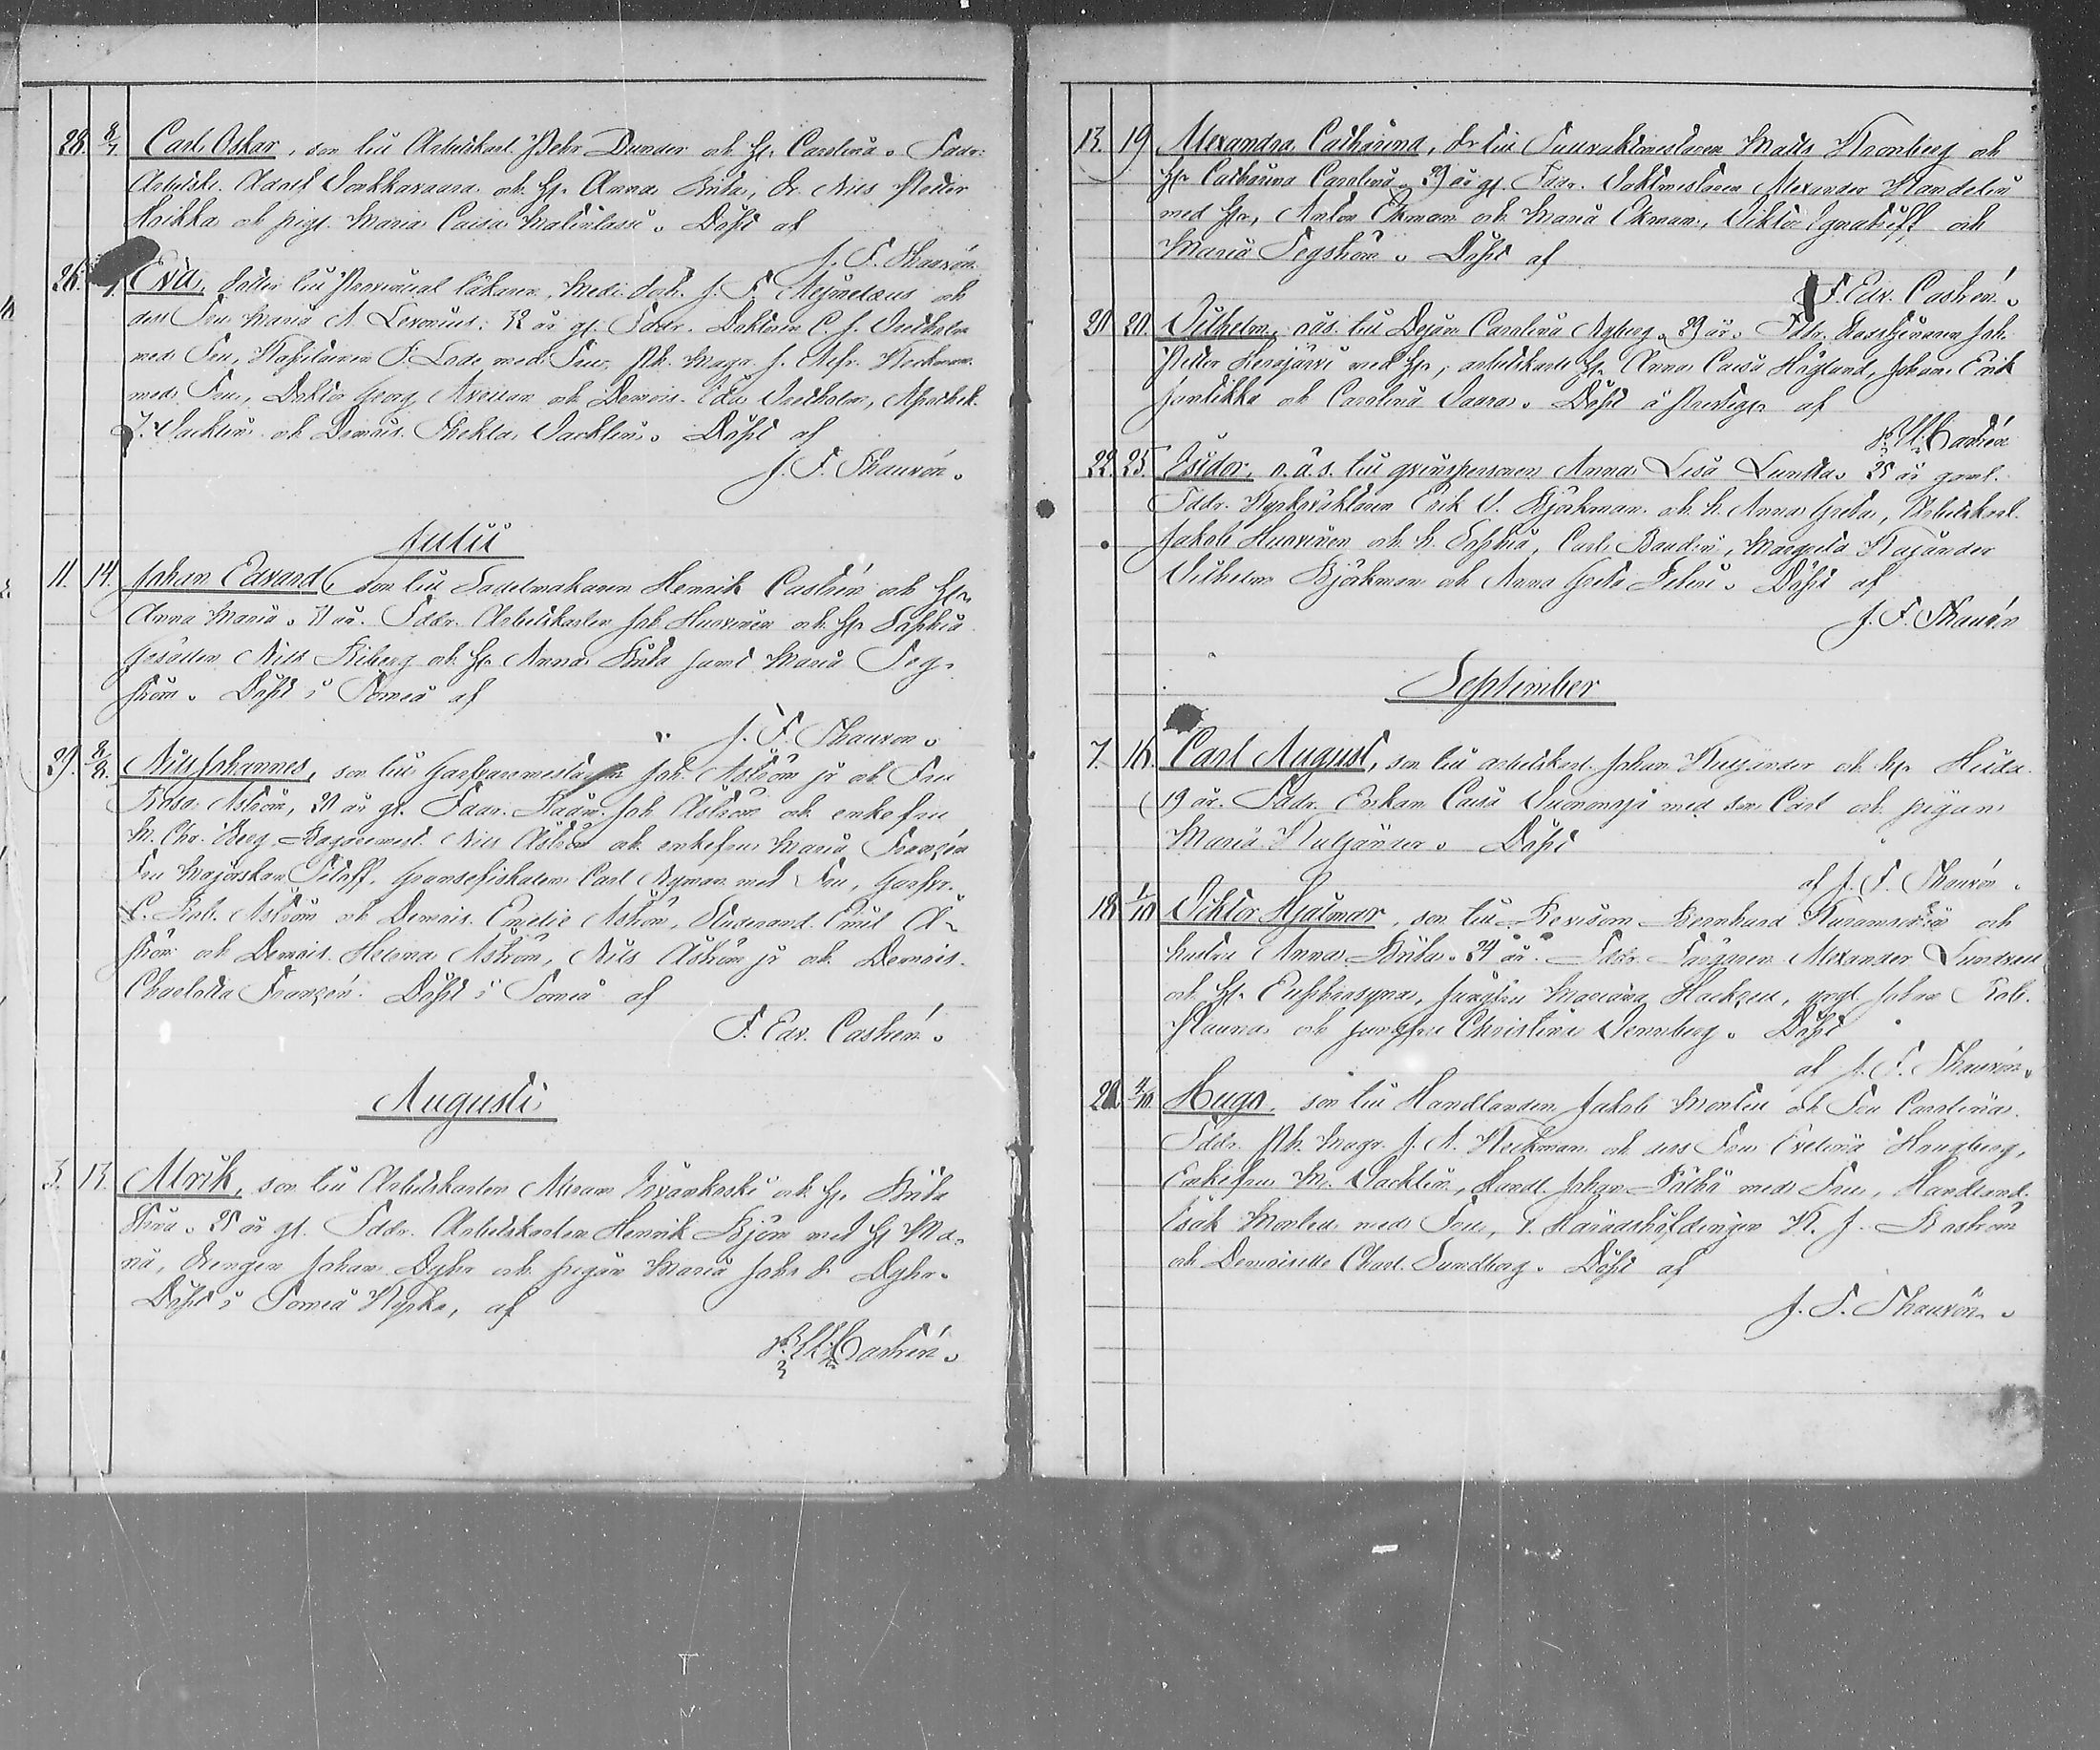 28. 8/7. Carl Oskar, son till Arbetskarl. Pehr Dunder och h. Carolina. Faddr:
Arbetsk. Adolf Vonkkavaara och h. Anna Brita, dr. Nils Peder
Hoikka och pig. Maria Caisa Matinlassi. Döpt af
J. F. Thauvón
26. Eva, dotter till Provincial läkaren, Medi. dokt. J. F. och
dess Fru Maria A. Levonius; 32 år gl. Faddr. Doktoren C. J.
med Fru, Kapitainen F. Lode med Fru, Ph. Magr. J. Heikman
med Fru, Doktor Georg och Demois. Ida, Apothek.
F. Vacklin och Demois. Thekla Vacklin. Döpt af
J. F. Thauvón.
Julii
11. 14. Johan Edvard, son till Sadelmakaren Henrik Castrén och h.
Anna Maria. 31 år. Faddr. Arbetskarlen Joh Huovinen och h. Sophia
Gesällen Nils Friberg och h. Anna Brita samt Maria Feg-
ström. Döpt i Torneå af
J. F. Thauvon.
29. Nils Johannes, son till Garfvaremästaren Joh. Åström jr och Fru
Rosa Åström, 20 år gl. Faddr. Rådm. Joh Åström och enkefru
M. Chr. Berg, Bagaremest. Nils Åström och enkefru Maria Franzén
Fru Majorskan, Gränsefiskalen Carl Nyman med Fru, Garfvr.
C. Rob. Åström och Demois. Emelie Åström, Studerand. Emil Å-
ström och Demois. Helena Åström, Nils Åström jr och Demois.
Charlotta Franzén. Döpt i Torneå af
F. Edv. Castrén.
Augusti
3. 13. Alrik, son till Arbetskarlen Abram och h. Brita
Stina. 25 år gl. Faddr. Arbetskarlen Henrik Björn med h. Ma-
ria, drengen Johan Dyhr och pigan Maria Johs dr Dyhr.
Döpt i Torneå Kyrka, af
Castrén.
13. 19 Alexandra Catharina, dr till Tullvaktmästaren Matts Kronberg och
h. Catharina Carolina, 29 år gl. Faddr. Vaktmestaren Alexander Kandelin
med h., Anton Ekman och Maria Ekman, Viktor Egnatieff och
Maria Fegström. Döpt af
F. Edv. Castrén.
20 20. Vilhelm, oäs. till Dejan Carolina Nyberg. 29 år. Faddr. Joh.
Peder Kerojärvi med h., arbetskarls h. Anna Caisa Höglund, Johan Erik
Juntikka och Carolina Vaara. Döpt å Prestegn af
Castrén
22. 25. Isidor, o.ä.s. till qvinspersonen Anna Lisa Lunkka. 25 år gaml.
Faddr. Kyrkväktaren Erik V. Björkman och h. Anna Greta, Arbetskarl.
Jakob Huovinen och h. Sophia, Carl Baudin, Margreta Kajander
Vilhelm Björkman och Anna Greta. Döpt af
J. F. Thauvón
September
7. 16. Carl August, son till arbetskarl Johan Kutjander och h. Hilda.
19 år. Faddr. Enkan Caisa Vuononoja med son Carl och pigan
Maria Kutjander. Döpt
af J. F. Thauvón.
18. 1/10 Viktor Hjalmar, son till Revisorn Bernhard och
hustru Anna Brita. 24 år. Faddr. Färgaren Alexander Lundzell
och h. Euphrosyna, jungfru Mariana Hackzell, yngl. Johan Rob.
Planna och jungfru Christina Vennberg. Döpt
af J. F. Thauvón.
20. 4/10. Hugo, son till Handlanden Jakob Montell och Fru Carolina.
Faddr. Ph. Magr. J. A. Heikman och dess Fru Evelina,
Enkefru M. Vacklin, Handl. Johan med Fru, Handland.
Isak Montell med Fru, V. Häradshöfdingen K. J. Boström
och Demoiselle Charl. Sundberg. Döpt af
J. F. Thauvón.